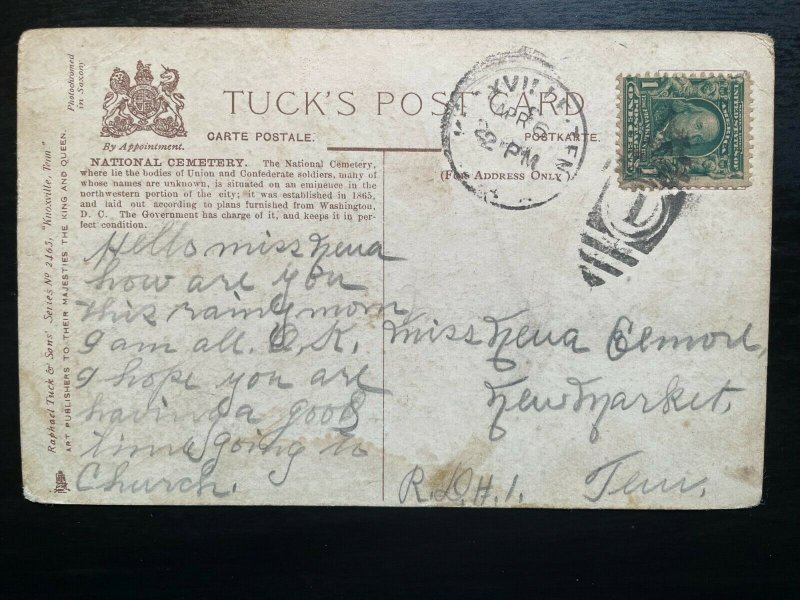 TUCK'S POST CARD
CARTE POSTALE.
POSTKARTE.
(FOR ADDRESS ONLY)
By Appointment.
Photochromed
in Saxony
NATIONAL CEMETERY. The National Cemetery,
where lie the bodies of Union and Confederate soldiers, many of
whose names are unknown, is situated on an eminence in the
northwestern portion of the city; it was established in 1865,
and laid out according to plans furnished from Washington,
D. C. The Government has charge of it, and keeps it in per-
fect condition.
Raphael Tuck & Sons' Series No 2465, "Knoxville, Tenn"
ART PUBLISHERS TO THEIR MAJESTIES THE KING AND QUEEN.
Hello miss Lena
how are you
this rainy morn
I am all. O,K,
I hope you are
having a good
time going to
Church.
Miss Lena Elmore,
New Market,
R.D.#.1. Tenn.
APR 6
PM
1
1
1